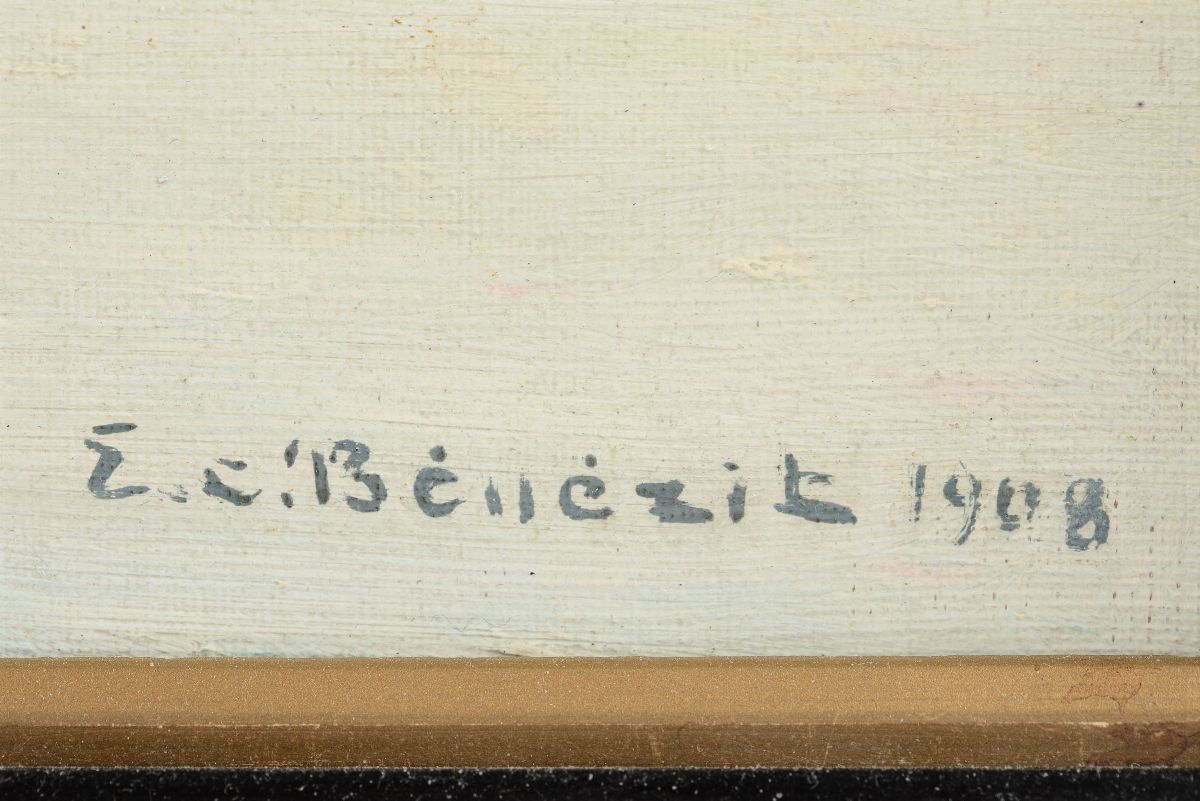 E. c. Bénézit 1908